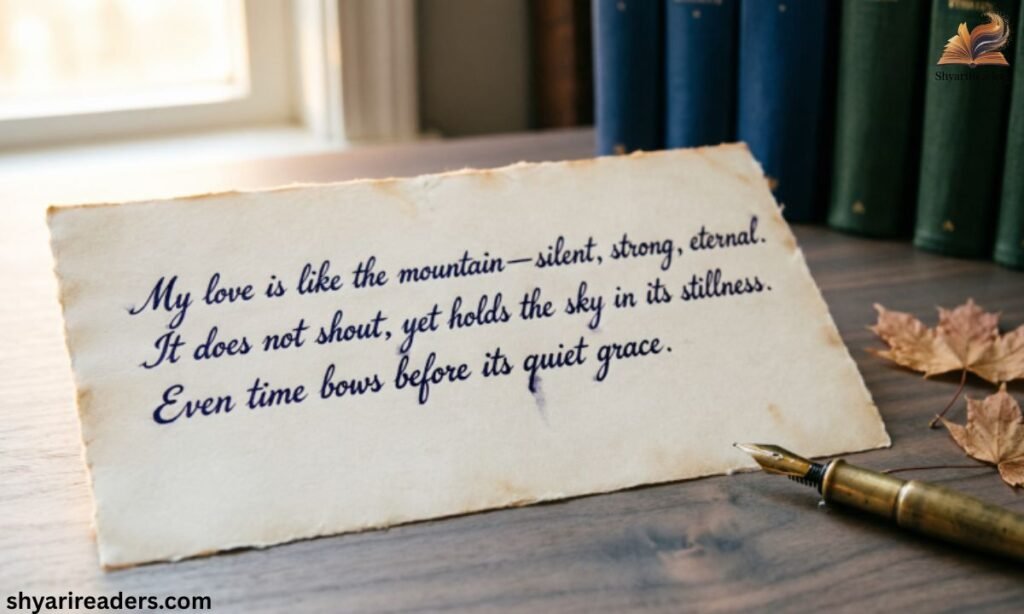 ShyariReaders
My love is like the mountain—silent, strong, eternal.
It does not shout, yet holds the sky in its stillness.
Even time bows before its quiet grace.
shyarireaders.com